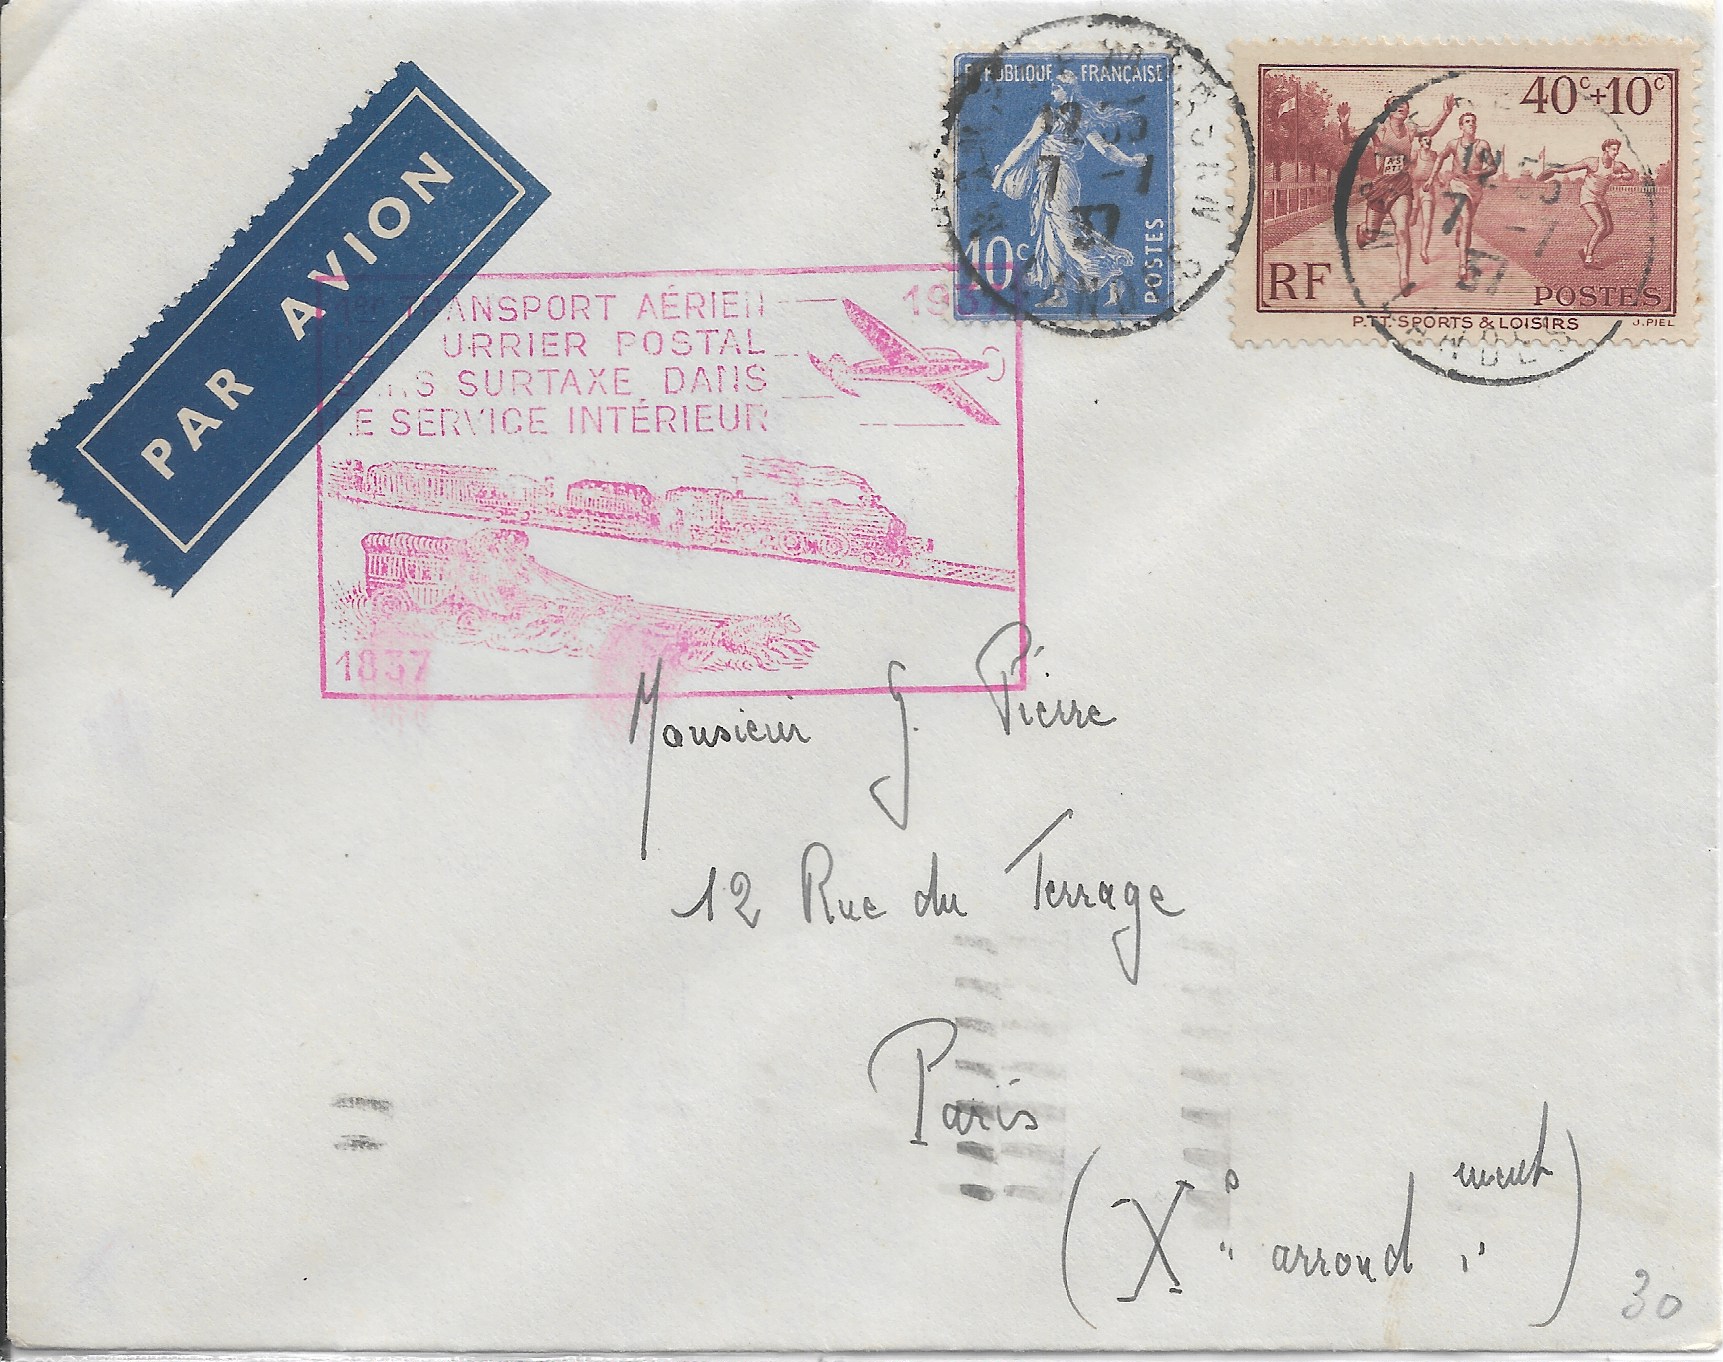 PAR AVION
RÉPUBLIQUE FRANÇAISE
10c
POSTES
12 35
7 -7
37
LANDES
40c+10c
RF
POSTES
P.T.T. SPORTS & LOISIRS
J. PIEL
12 35
7 -7
37
LANDES
TRANSPORT AÉRIEN
1937
URRIER POSTAL
SURTAXE DANS
LE SERVICE INTÉRIEUR
1837
Monsieur G. Pierre
12 Rue du Terrage
Paris
(Xe arrondment)
30